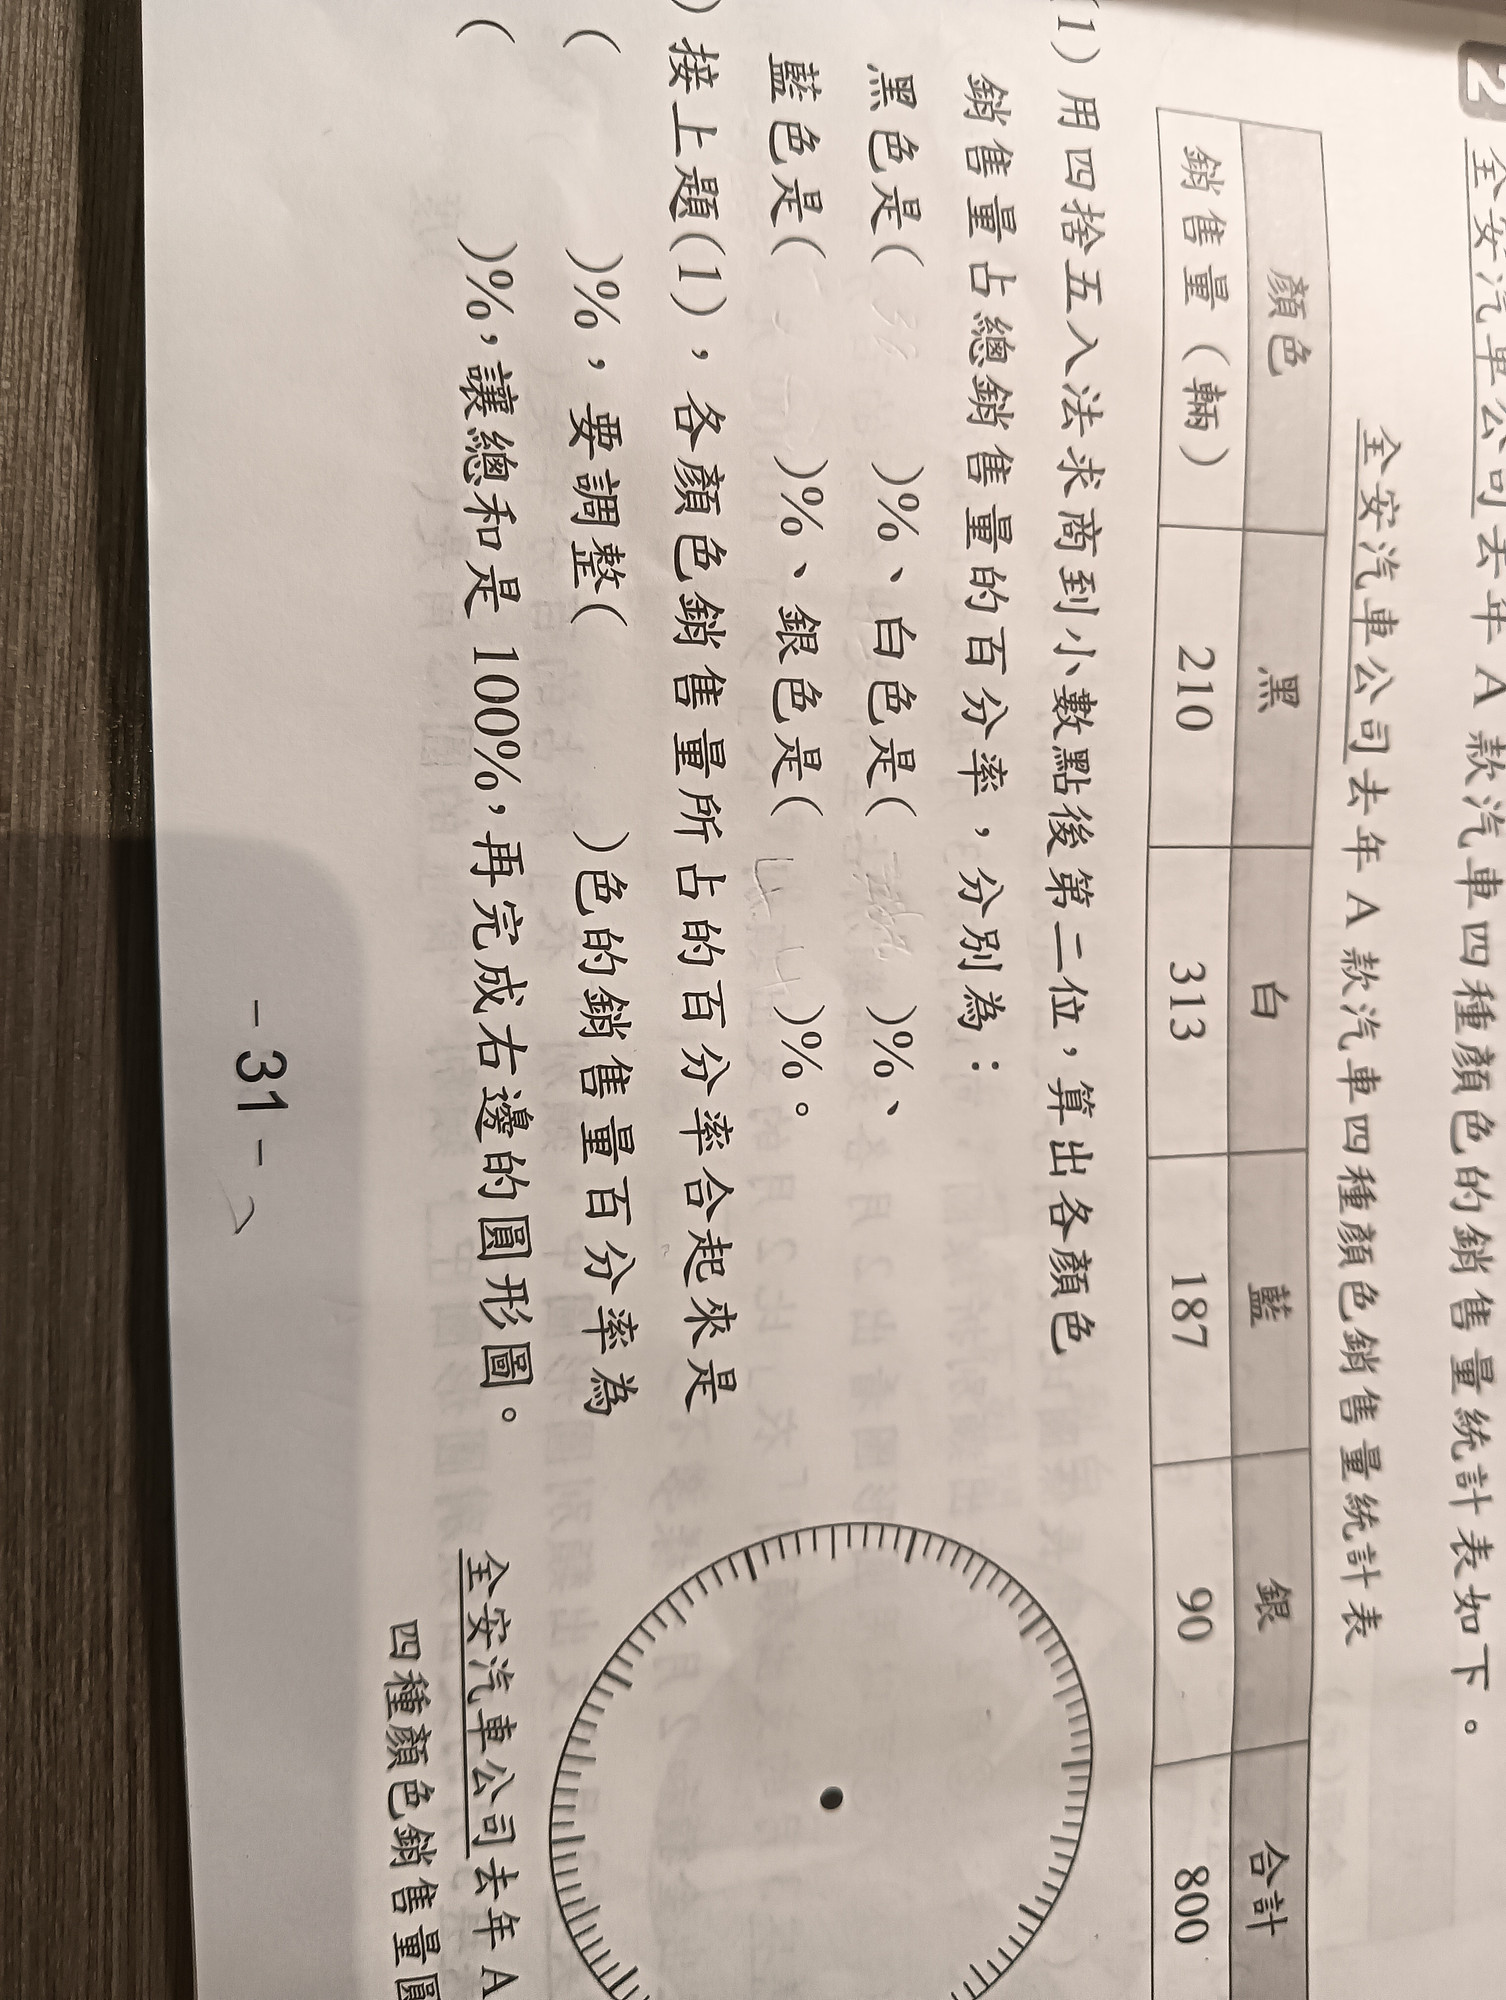 2 全安汽車公司去年 A 款汽車四種顏色的銷售量統計表如下。
全安汽車公司去年 A 款汽車四種顏色銷售量統計表
顏色 黑 白 藍 銀 合計
銷售量（輛） 210 313 187 90 800
1) 用四捨五入法求商到小數點後第二位，算出各顏色
銷售量占總銷售量的百分率，分別為：
黑色是( )%、白色是( )%、
藍色是( )%、銀色是( )%。
) 接上題(1)，各顏色銷售量所占的百分率合起來是
( )%，要調整( )色的銷售量百分率為
( )%，讓總和是 100%，再完成右邊的圓形圖。
全安汽車公司去年 A
四種顏色銷售量圓
- 31 -